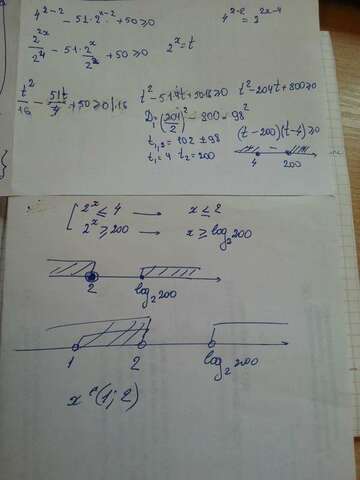 4^{x-2} - 51·2^{x-2} + 50 ≥ 0    4^{x-2} = 2^{2x-4}
2^{2x}/2^4 - 51·2^x/2^2 + 50 ≥ 0    2^x = t
t^2/16 - 51t/4 + 50 ≥ 0 |·16    t^2 - 51·4t + 50·16 ≥ 0    t^2 - 204t + 800 ≥ 0
D_1 = (204/2)^2 - 800 = 98^2
t_{1,2} = 102 ± 98    (t - 200)(t - 4) ≥ 0
t_1 = 4  t_2 = 200    4    200
[ 2^x ≤ 4 → x ≤ 2
2^x ≥ 200 → x ≥ log_2 200
2    log_2 200
1    2    log_2 200
x ∈ (1; 2)